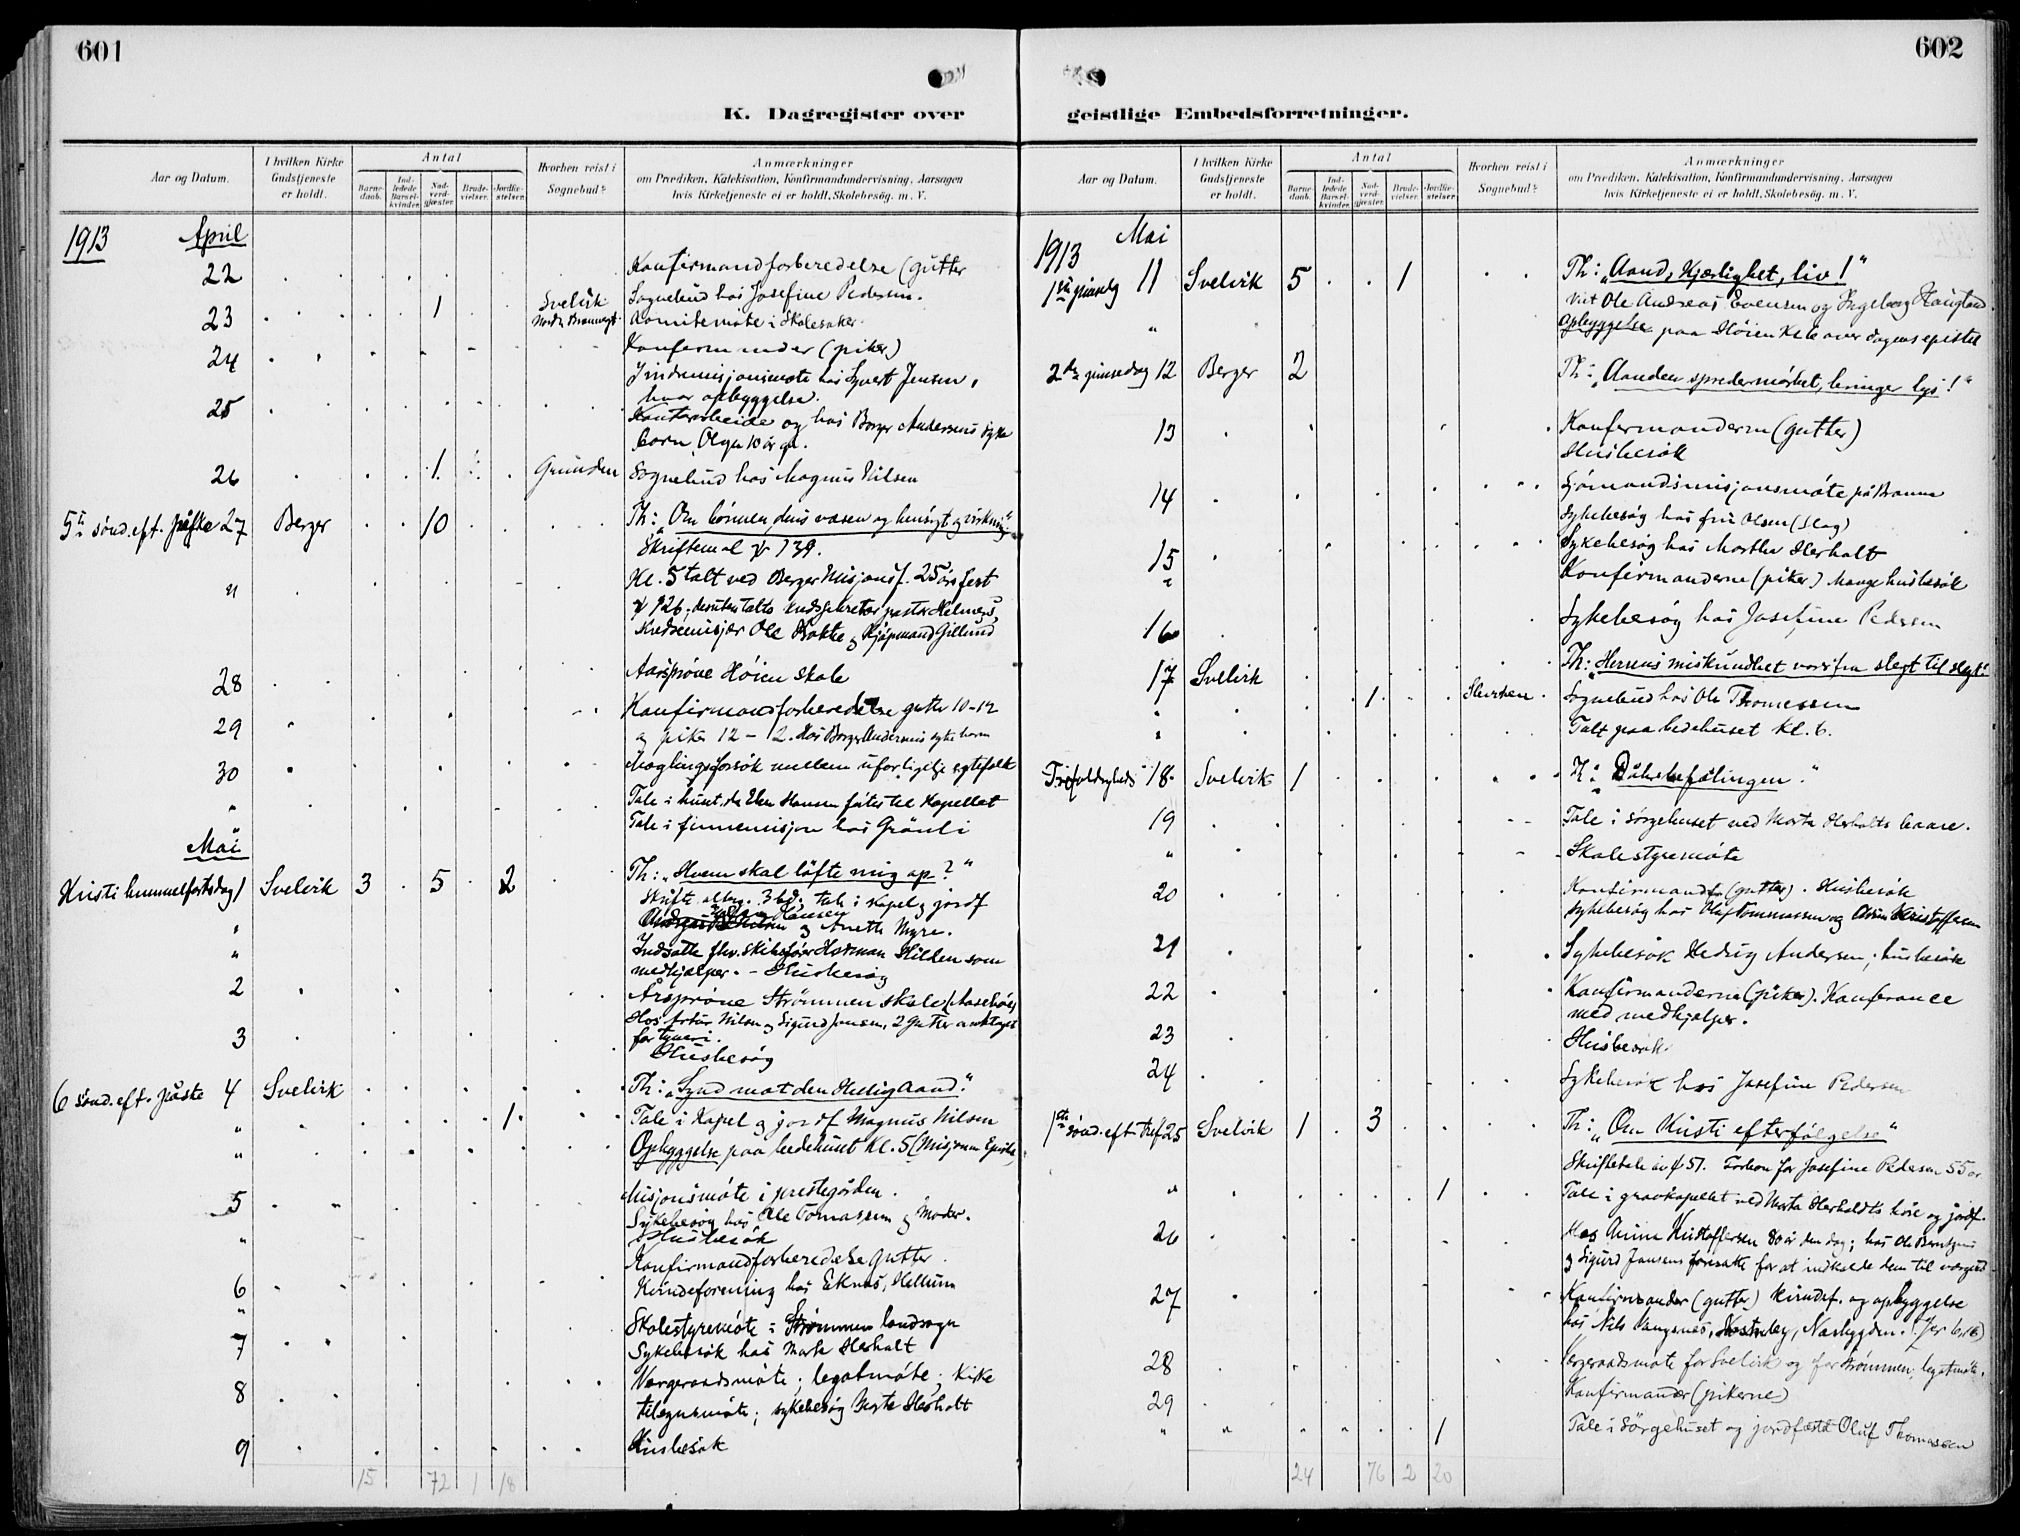 601
K. Dagregister over
Aar og Datum.
I hvilken Kirke Gudstjeneste er holdt.
Antal
Barnedaab.
Indledede Barselkvinder.
Nadverdgjæster.
Brudevielser.
Jordfæstelser.
Hvorhen reist i Sognebud?
Anmærkninger
om Prædiken, Katekisation, Konfirmandundervisning, Aarsagen
hvis Kirketjeneste ei er holdt, Skolebesøg. m. V.
1913 April
22 Konfirmandforberedelse (gutter
23 1 Svelvik Sognebud hos Josefine Pedersen.
Komitemöte i Skolesaker.
24 Konfirmander (piker)
Indremisjonsmöte hos Syvert Jensen,
hvor opbyggelse.
25 Kontorarbeide og hos Borger Andersens syke
barn, Olga 10 år gl.
26 1 Grunden Sognebud hos Magnus Nilsen
5te sönd. eft. påske 27 Berger 10 Th: „Om bönnen, dens væsen og hensigt og virkning“
Skriftemal ψ 139.
" Kl. 5 talt ved Berger Misjonsf. 25 års fest
ψ 126. desuten talte kredssekretær pastor
Kredsemisjær Ole og Kjöpmand Gillund
28 Aarspröve Höien skole
29 Konfirmandforberedelse gutter 10-12
og piker 12 - 2. Hos Borger Andersens syke barn
30 Mæglingsforsök mellem uforligelige egtefolk
" Tale i huset, da Elen Hansen førtes til Kapellet
Tale i finnemisjon hos Grönli
Mai
Kristi himmelfartsdag 1 Svelvik 3 5 2 Th: „Hvem skal löfte mig op?“
Skrifte alterg. 3 bd. tale i kapel og jordf
Hansen og Anette Myre.
" Indsatte fhv. skibsförer Herman Hilden som
medhjælper. - Husbesög
2 Årspröve Strömmen skole
3 Hos Artur Nilsen og Sigurd Jansen, 2 gutter
for tyveri.
Husbesög
6 sönd. eft. påske 4 Svelvik Th: „Synd mot den Hellig Aand.“
" 1 Tale i Kapel og jordf Magnus Nilsen
" Opbyggelse paa bedehuset Kl. 5
5 Misjonsmöte i prestegården.
Sykebesög hos Ole Tomassen og Moder.
" Husbesök
6 Konfirmandforberedelse gutter.
Kvindeforening hos Eknes, Hellum
7 Skolestyremöte i Strømmen landsogn
Sykebesök hos Marte Herholt
8 Vergeraadsmöte; legatmöte; kirke
tilsynsmöte; sykebesög Marte Herholt
9 Husbesök
15 72 1 18
602
geistlige Embedsforretninger.
Aar og Datum.
I hvilken Kirke Gudstjeneste er holdt.
Antal
Barnedaab.
Indledede Barselkvinder.
Nadverdgjæster.
Brudevielser.
Jordfæstelser.
Hvorhen reist i Sognebud?
Anmærkninger
om Prædiken, Katekisation, Konfirmandundervisning, Aarsagen
hvis Kirketjeneste ei er holdt, Skolebesøg. m. V.
1913 Mai
1ste pinsedg 11 Svelvik 5 1 Th: „Aand, Kjærlighet, liv!“
Viet Ole Andreas Evensen og Ingeborg Haugland
" Opbyggelse paa Höien Kl. 6 over dagens epistel
2den pinsedag 12 Berger 2 Th: „Aanden spreder mörket, bringer lys!“
13 Konfirmanderne (gutter)
Husbesök
14 Sjömandsmisjonsmöte på
Sykebesög hos fru Olsen (slag)
15 Sykebesög hos Marthe Herholt
" Konfirmanderne (piker) Mange husbesök
16 Sykebesög hos Josefine Pedersen
17 Svelvik Th: „Herrens miskundhet varer fra slegt til slegt“
" 1 Sognebud hos Ole Thomessen
" Talt paa bedehuset Kl. 6.
Trefoldigheds 18 Svelvik 1 Th: „Dåbsbefalingen.“
19 Tale i sörgehuset ved Marte Herholts baare.
" Skolestyremöte
20 Konfirmander (gutter). Husbesök
Sykebesög hos Oluf Tommassen og Anne Kristoffersen
21 Sykebesök Hedvig Andersen; husbesök
22 Konfirmanderne (piker). Konferance
med medhjælper.
23 Husbesök.
24 Sykebesök hos Josefine Pedersen
1ste sönd. eft. tref 25 Svelvik 1 3 Th: „Om Kristi efterfölgelse“
Skriftetale av ψ 51. Forbön for Josefine Pedersen 55 år
" 1 Tale i gravkapellet ved Marta Herholdts båre og jordf.
26 Hos Anne Kristoffersen 80 år den dag; hos Ole Berntsens
og Sigurd Jansens foresatte for at indkalde dem til vergeråd
27 Konfirmander (gutter) kvindef. og opbyggelse
hos Nils Vangsnes, Nesbygden. (Jer 6,16)
28 Vergeraadsmöte for Svelvik og for Strömmen; legatmöte.
29 Konfirmander (pikerne)
" 1 Tale i Sörgehuset og jordfæsted Oluf Thomassen
24 76 2 20